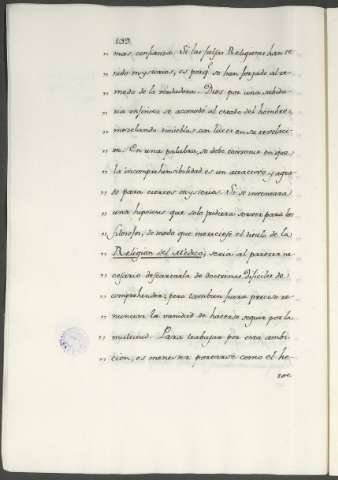 133
" mas, confianza. Si las falsas Religiones han te
" nido mysterios, es porq.e se han forjado al re
" medo de la verdadera. Dios por una sabidu
" ria infinita se acomodó al estado del hombre
" mezclando tinieblas con luces en su revelac
" ion. En una palabra, se debe convenir en que
" la incomprehensibilidad es un atractivo y agra
" do para ciertos mysterios. Si se inventara
" una hipotesis que solo pudiera servir para los
" filosofos, de modo que mereciese el titulo de la
" Religion del Medico, seria al parecer ne
" cesario descartarla de doctrinas dificiles de
" comprehender; pero tambien fuera preciso re
" nunciar la vanidad de hacerse seguir por la
" multitud. Para trabajar por esta ambi
" cion, es menester portarse como el he
roe